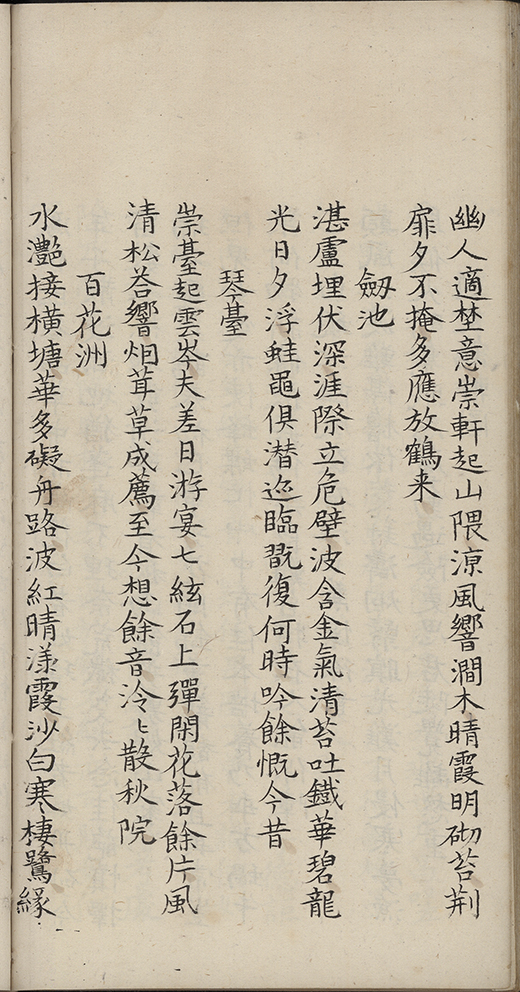 幽人適埜意崇軒起山隈涼風響澗木晴霞明砌苔荆
扉夕不掩多應放鶴来
劔池
湛盧埋伏深涯際立危壁波含金氣清苔吐鐵華碧龍
光日夕浮蛙黽俱潜迹臨翫復何時吟餘慨今昔
琴臺
崇臺起雲岑夫差日游宴七絃石上彈閑花落餘片風
清松荅響烟茸草成薦至今想餘音泠〻散秋院
百花洲
水灧接横塘華多礙舟路波紅晴漾霞沙白寒棲鷺緣